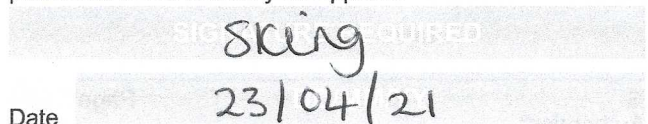 SIGNATURE REQUIRED
Sking
Date 23/04/21